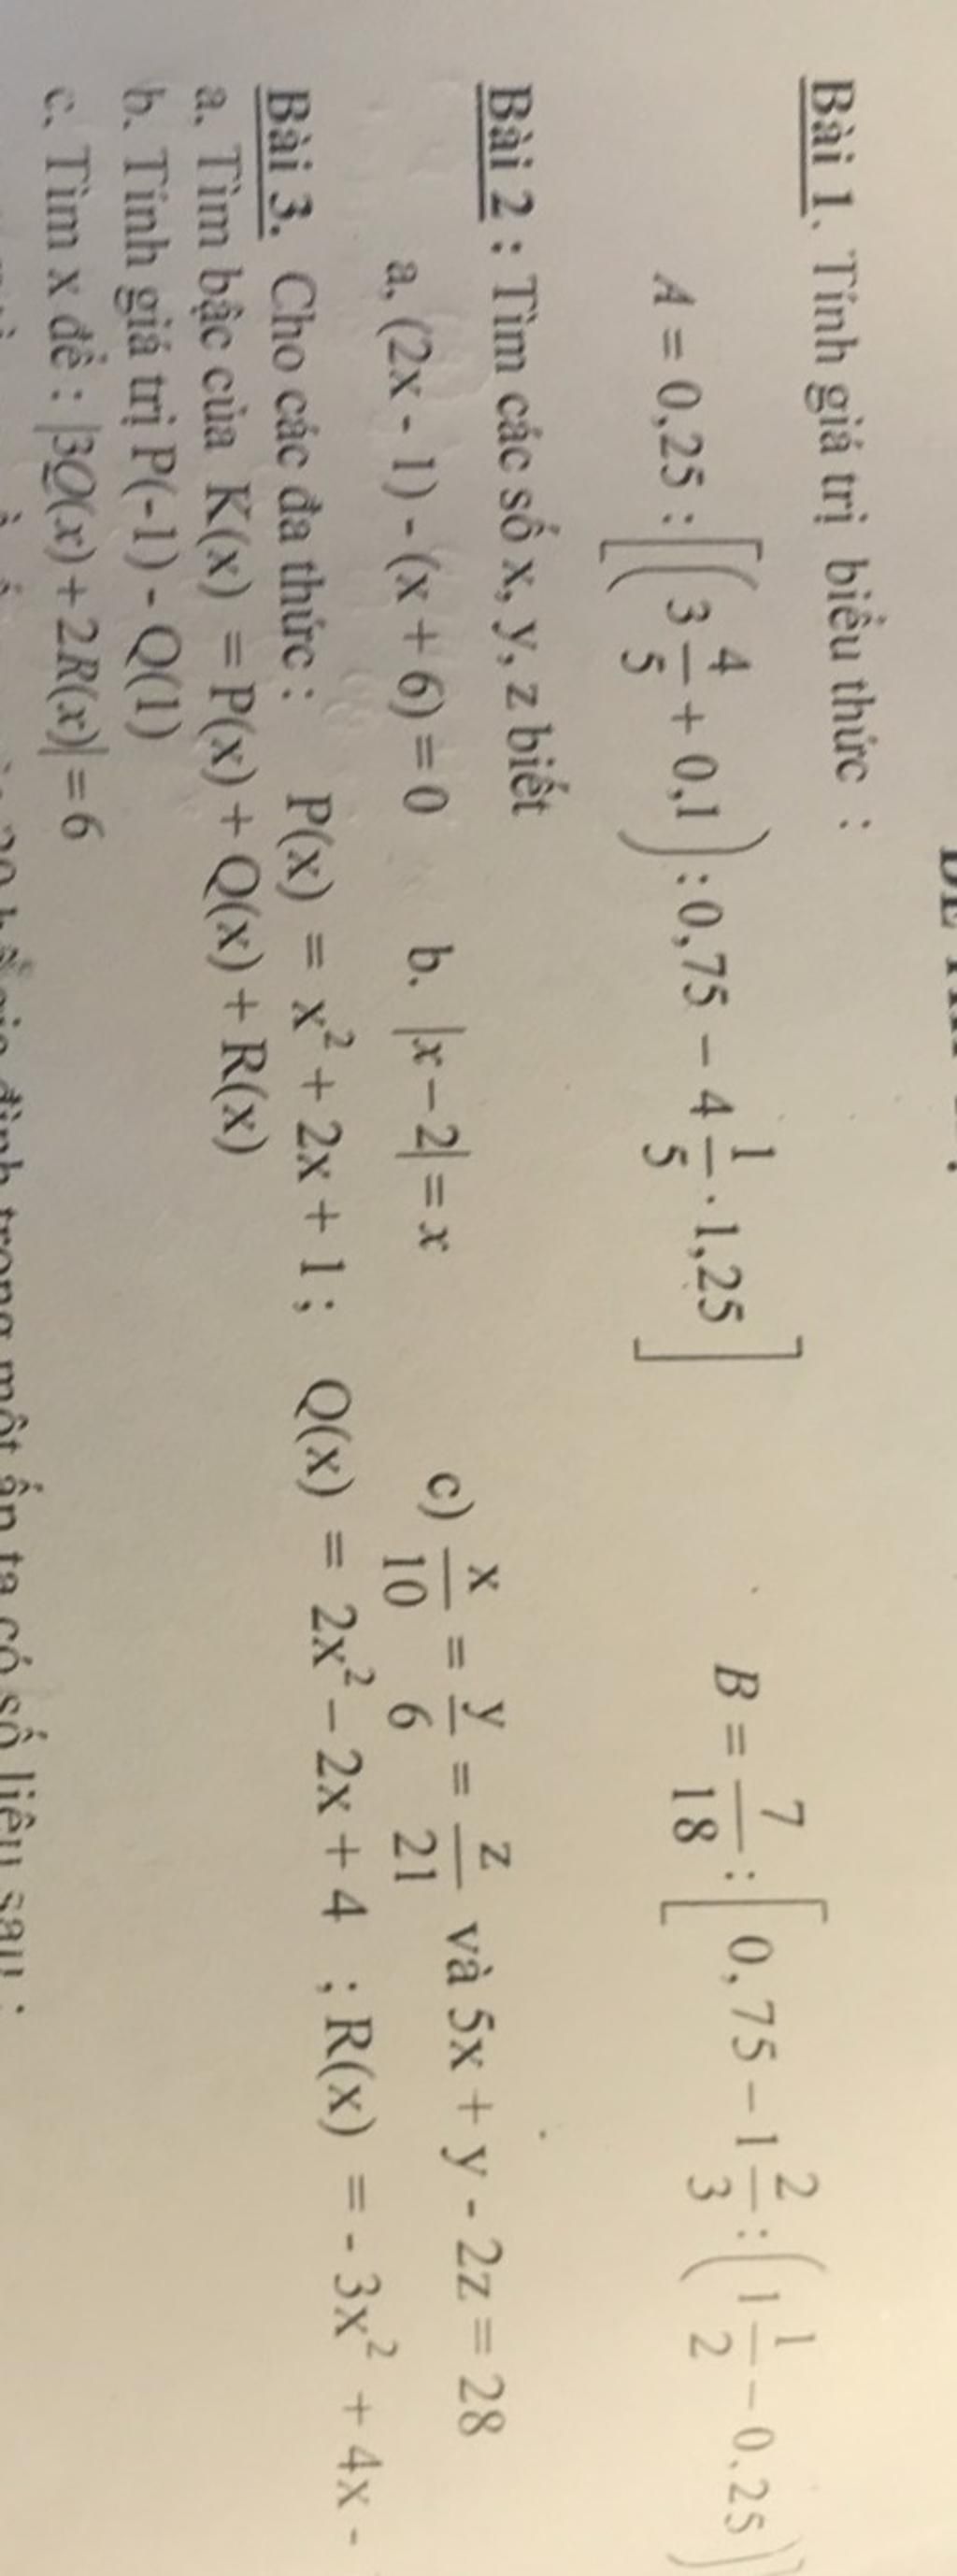 Bài 1. Tính giá trị biểu thức :
A = 0,25 : [(3 4/5 + 0,1) : 0,75 − 4 1/5 . 1,25] B = 7/18 : [0,75 − 1 2/3 : (1 1/2 − 0.25)
Bài 2 : Tìm các số x, y, z biết
a, (2x - 1) - (x + 6) = 0 b. |x − 2| = x c) x/10 = y/6 = z/21 và 5x + y - 2z = 28
Bài 3. Cho các đa thức : P(x) = x² + 2x + 1 ; Q(x) = 2x² − 2x + 4 ; R(x) = - 3x² + 4x -
a. Tìm bậc của K(x) = P(x) + Q(x) + R(x)
b. Tính giá trị P(-1) - Q(1)
c. Tìm x để : |3Q(x) + 2R(x)| = 6
gia đình trong một ấp ta có số liệu sau :